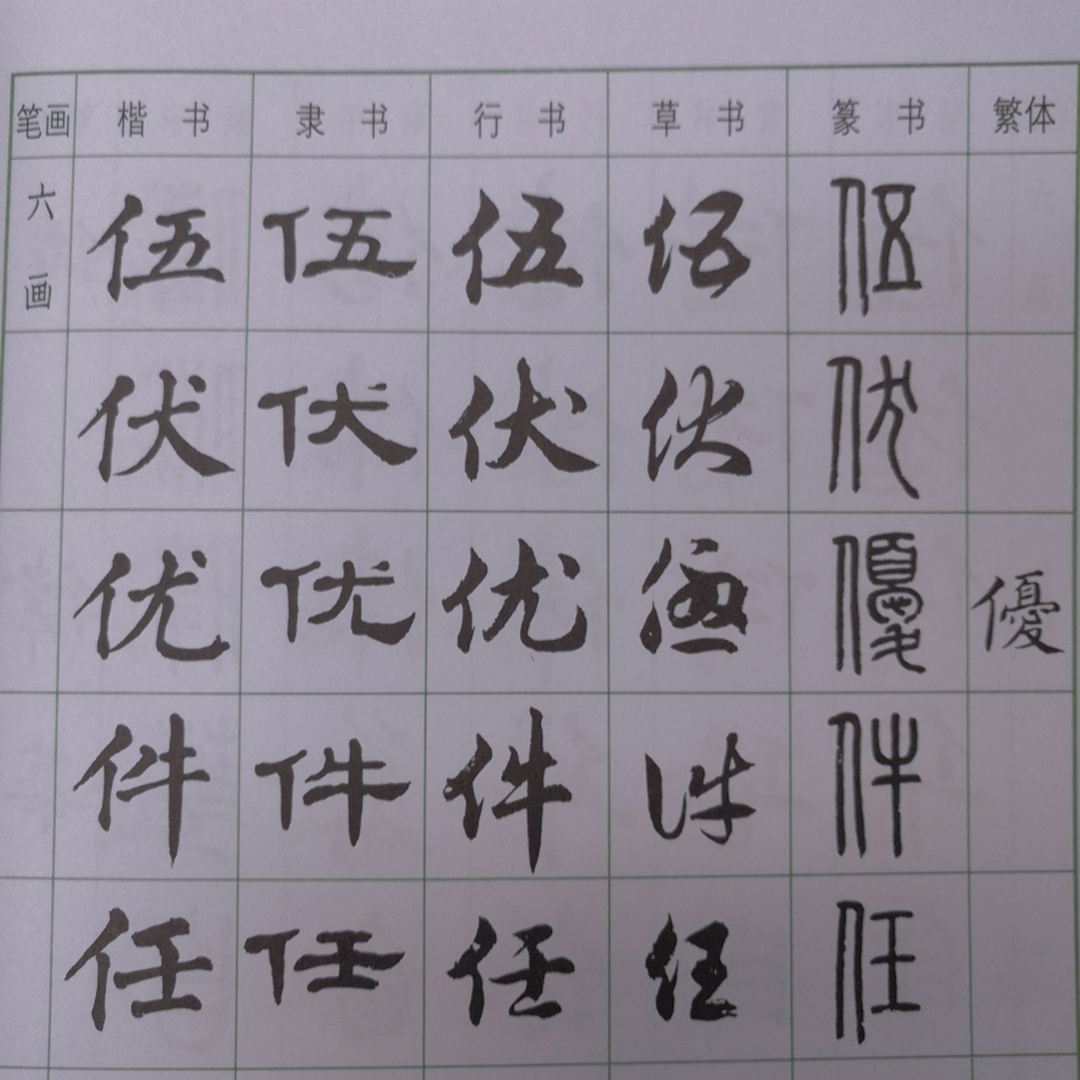 笔画 楷书 隶书 行书 草书 篆书 繁体
六画 伍 伍 伍 伍 伍
伏 伏 伏 伏 伏
优 优 优 优 優 優
件 件 件 件 件
任 任 任 任 任